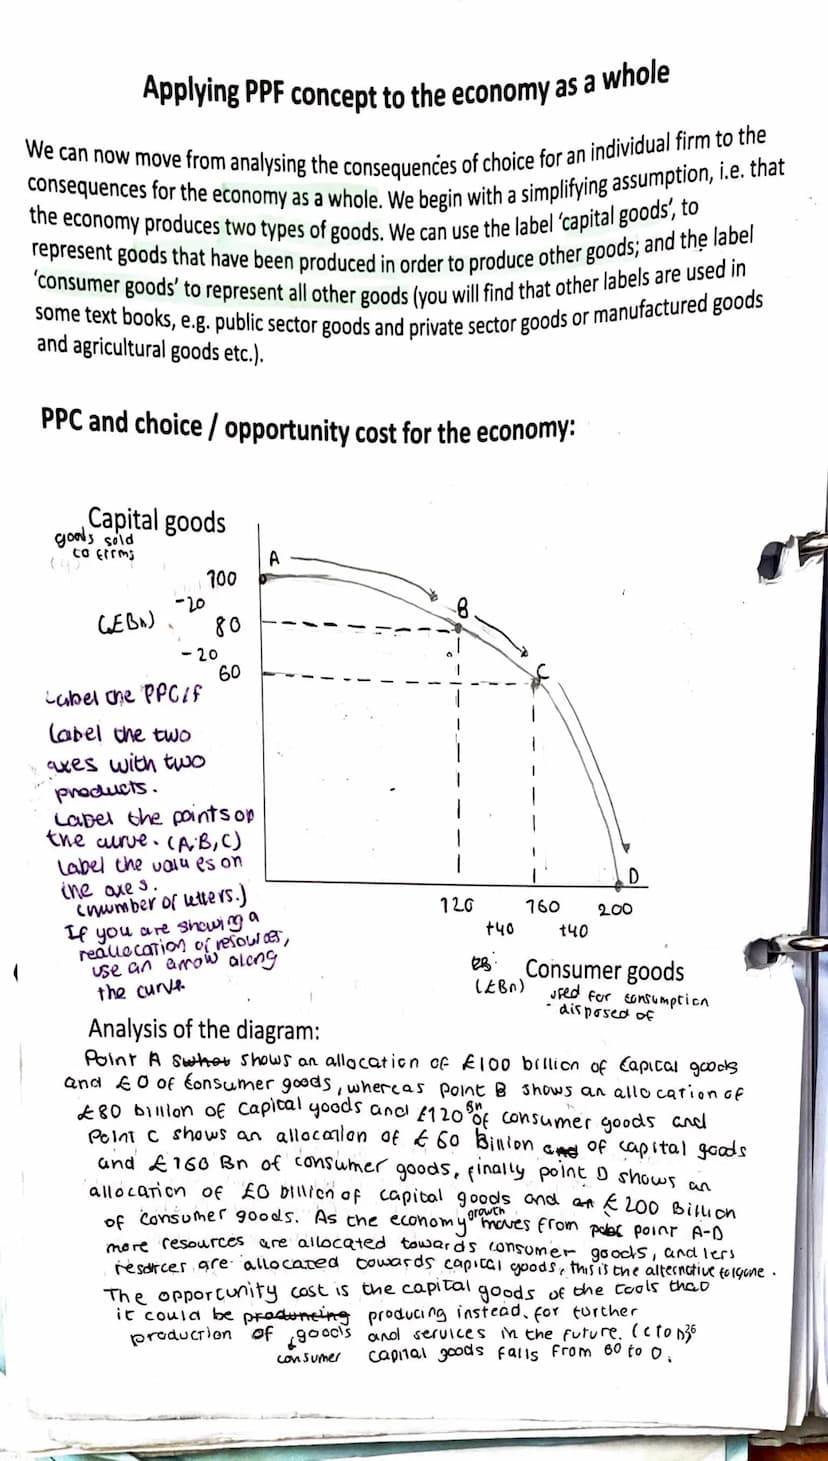 Applying PPF concept to the economy as a whole
We can now move from analysing the consequences of choice for an individual firm to the
consequences for the economy as a whole. We begin with a simplifying assumption, i.e. that
the economy produces two types of goods. We can use the label 'capital goods', to
represent goods that have been produced in order to produce other goods; and the label
'consumer goods' to represent all other goods (you will find that other labels are used in
some text books, e.g. public sector goods and private sector goods or manufactured goods
and agricultural goods etc.).
PPC and choice / opportunity cost for the economy:
Capital goods
goods sold
to firms
A
100
-20
B
(£Bn)
80
-20
C
60
Label the PPC/f
label the two
axes with two
products.
Label the points on
the curve. (A,B,C)
label the values on
the axes.
(number of letters.)
If you are showing a
reallocation of resources,
use an arrow along
the curve
D
120
160
200
+40
+40
(£Bn)
Consumer goods
used for consumption
- disposed of
Analysis of the diagram:
Point A shows an allocation of £100 billion of Capital goods
and £0 of Consumer goods, whereas point B shows an allocation of
£80 billion of Capital goods and £120 Bn of consumer goods and
Point C shows an allocation of £60 Billion of capital goods
and £160 Bn of consumer goods, finally point D shows an
allocation of £0 billion of capital goods and £200 Billion
of Consumer goods. As the economy growth moves from point A-D
more resources are allocated towards consumer goods, and less
resources are allocated towards capital goods, this is the alternative forgone.
The opportunity cost is the capital goods of the tools that
it could be producing instead. for further
production of consumer goods and services in the future. (C to D)
capital goods falls from 60 to 0.